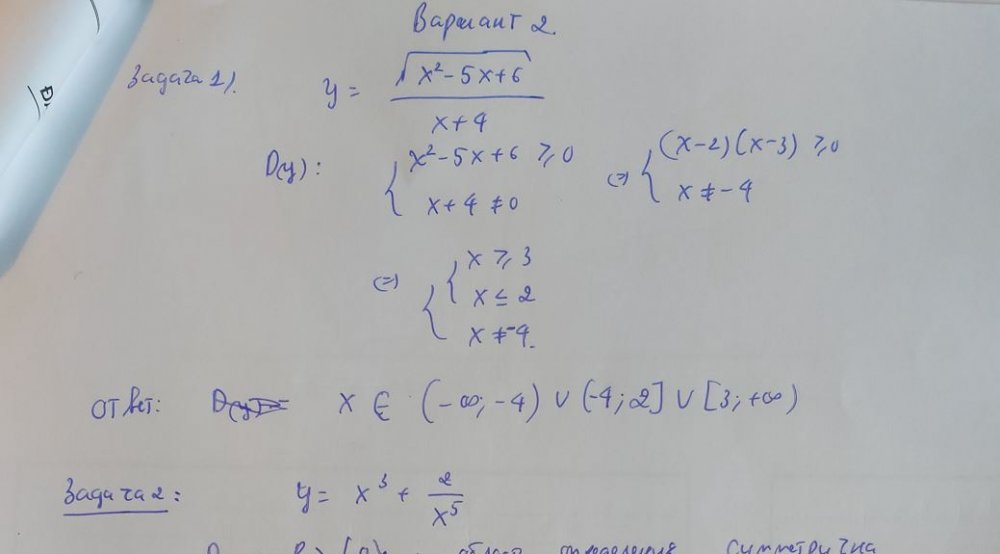 Вариант 2.
Задача 1). y = √(x² - 5x + 6) / (x + 4)
D(y): { x² - 5x + 6 ⩾ 0 ; x + 4 ≠ 0 (=) { (x-2)(x-3) ⩾ 0 ; x ≠ -4
(=) { { x ⩾ 3 ; x ≤ 2 ; x ≠ -4.
Ответ: x ∈ (-∞; -4) ∪ (-4; 2] ∪ [3; +∞)
Задача 2: y = x³ + 2/x⁵
область определения симметрична